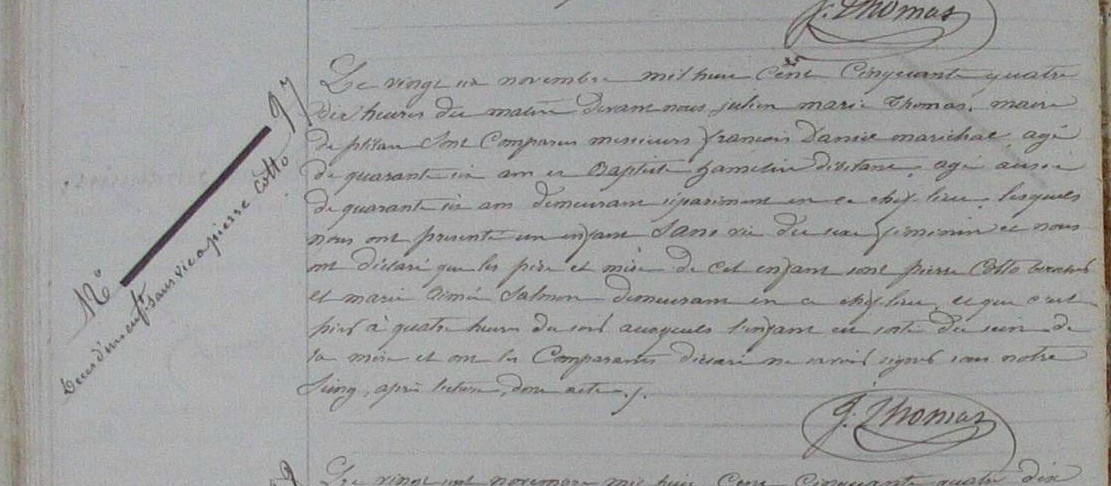 J. Thomas
N° 97
Deces d'un enft sans vie a pierre Cotto
Le vingt six novembre mil huit Cent Cinquante quatre
dix heures du matin devant nous julien marie Thomas, maire
de plélan Sont Comparus messieurs francois Daniel maréchal, agé
de quarante six ans et Baptiste hamelin agé aussi
de quarante six ans demeurant séparément en ce chef lieu, lesquels
nous ont présenté un enfant Sans vie du sexe féminin et nous
ont déclaré que les père et mère de cet enfant sont pierre Cotto
et marie aimée Salmon demeurant en ce chef lieu, et que c'est
hier à quatre heures du soir auxquels l'enfant est sorti du sein de
sa mère et ont les Comparants déclaré ne savoir signer sous notre
Seing, après lecture, dont acte ./.
J. Thomas
Le vingt sept novembre mil huit Cent Cinquante quatre dix